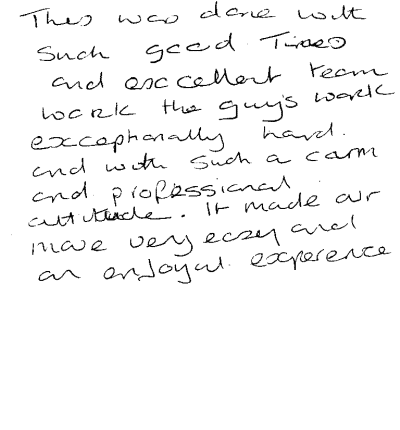 This was done with
such good Times
and excellent team
work the guy's work
exceptionally hard.
and with such a carm
and professional
attitude. It made our
move very easy and
an enjoyal experence